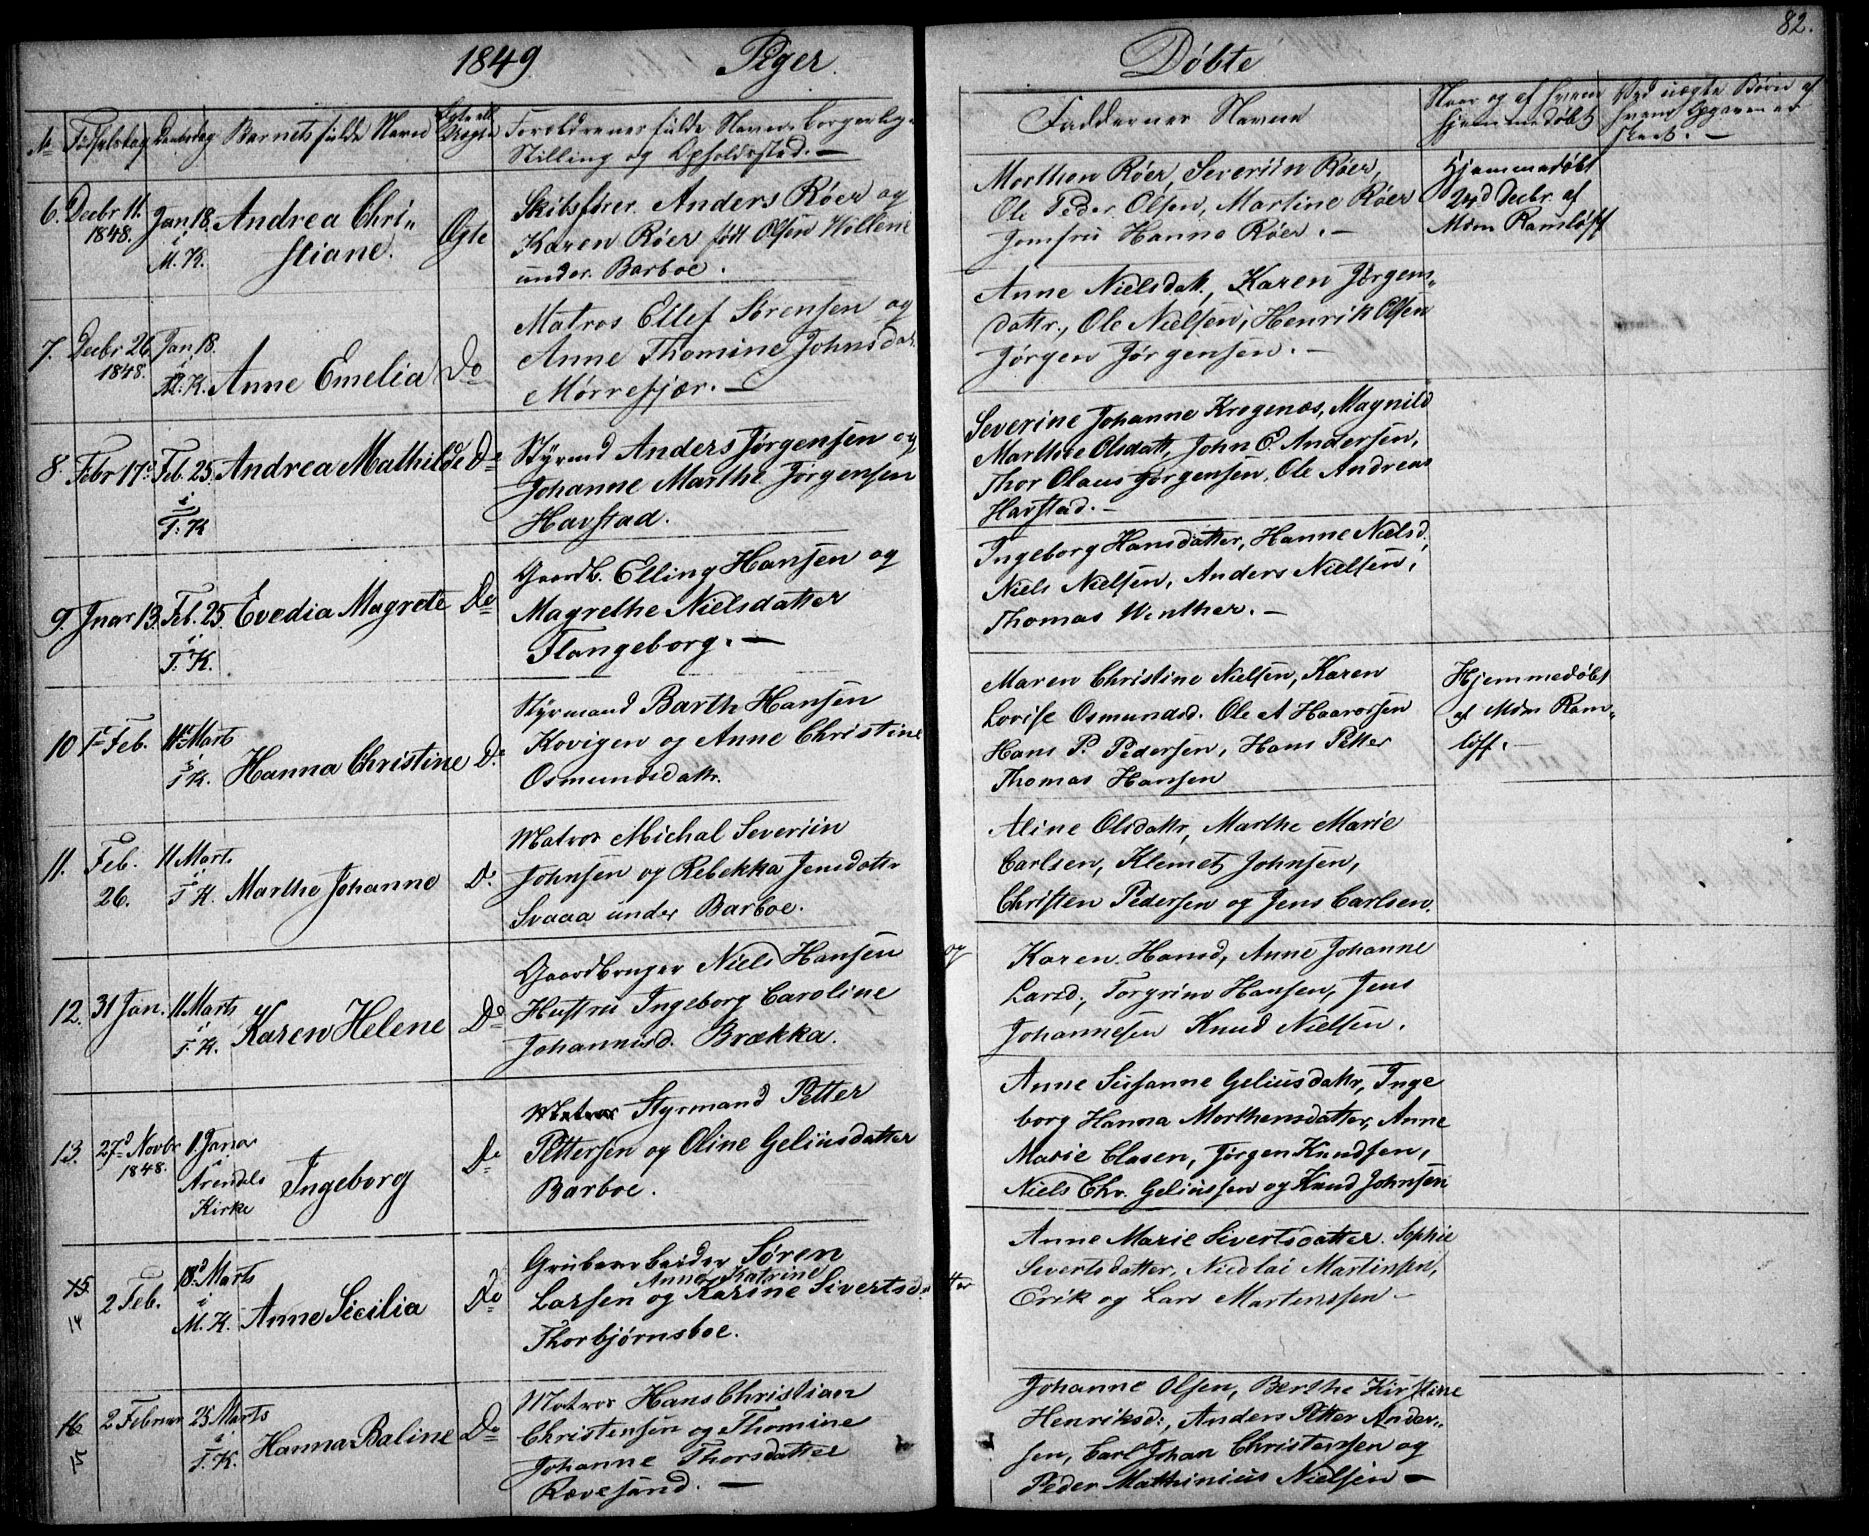 82.
1849 Piger Døbte
No Fødselsdag Daabsdag Barnets fulde Navn Ægte ell. Uægte Forældrenes fulde Navne, borgerlige
Stilling og Opholdssted. —
Faddernes Navne
Naar og af hvem
hjemmedøbt
Ved uægte Børn af
hvem Opgaven er
skeet. —
6. Decbr 11. 1848. Jan. 18. i M. K. Andrea Chri-
stiane. Ægte
Skibsfører Anders Røer og
Karen Røer født Olsen
under Barboe.
Morthen Røer, Severiin Røer,
Ole Peder Olsen, Martine Røer
Jomfru Hanne Røer. —
Hjemmedøbt
Decbr. af
Mdm Ramløff
7. Decbr 26 1848. Jan. 18. i M. K. Anne Emelia Do
Matros Ellef Sørensen og
Anne Thomine Johnsdat.
Mørrefjær. —
Anne Nielsdatt., Karen Jørgens-
dattr., Ole Nielsen, Henrik Olsen
Jørgen Jørgensen. —
8. Febr 17. Feb. 25. i T. K. Andrea Mathilde Do
Styrmd Anders Jørgensen og
Johanne Marthe Jørgensen
Havstad.
Severine Johanne Krogenæs, Magnild
Marthie Olsdatt, John E. Andersen,
Thor Olaus Jørgensen, Ole Andreas
Havstad. —
9. Jnar 13. Feb. 25. i T. K. Evedia Magrete Do
Gaardb. Elling Hansen og
Magrethe Nielsdatter
Flangeborg. —
Ingeborg Hansdatter, Hanne Nielsd.
Niels Nielsen, Anders Nielsen,
Thomas Winther. —
10 1 Feb. 11 Marts i T K. Hanna Christine Do.
Styrmand Barth Hansen
Kovigen og Anne Christine
Osmundsdattr.
Maren Christine Nielsen, Karen
Lovise Osmundsd. Ole A Haavorsen
Hans P. Pedersen, Hans Petter
Thomas Hansen
Hjemmedøbt
af Mdm Ram-
løff. —
11. Feb. 26. 11 Marts i T K. Marthe Johanne Do.
Matros Michal Severiin
Johnsen og Rebekka Jensdattr
Svaaa under Barboe.
Aline Olsdattr, Marthe Marie
Carlsen, Klemet Johnsen,
Christen Pedersen og Jens Carlsen.
12. 31 Jan. 11 Marts i T. K. Karen Helene Do
Gaardbruger Niels Hansen og
Hustru Ingeborg Caroline
Johannisd. Brækka.
Karen Hansd, Anne Johanne
Larsd., Torgrim Hansen, Jens
Johannesen Knud Nielsen.
13. 27d Novbr 1848. 1 Janar i Arendals Kirke Ingeborg Do
Matros Styrmand Petter
Pettersen og Oline Geliusdatter
Barboe.
Anne Susanne Geliusdattr, Inge
borg Hanna Morthensdatter, Anne
Marie Clasen, Jørgen Knudsen,
Niels Chr. Geliussen og Knud Johnsen
15 14 2 Feb. 18d Marts i M. K. Anne Sicilia Do
Grubearbeider Søren
Anne Katrine
Larsen og Karine Sivertsdatter
Thorbjørnsboe.
Anne Marie Sivertsdatter. Sophie
Sivertsdatter, Nicolai Martinsen,
Erik og Lars Martenssen —
16 15 2 Februar 25 Marts i T. K. Hanna Baline Do
Matros Hans Christian
Christensen og Thomine
Johanne Thorsdatter
Rævesand. —
Johanne Olsen, Berthe Kirstine
Henriksd:, Anders Petter Ander-
sen, Carl Johan Christensen og
Peder Mathinius Nielsen —